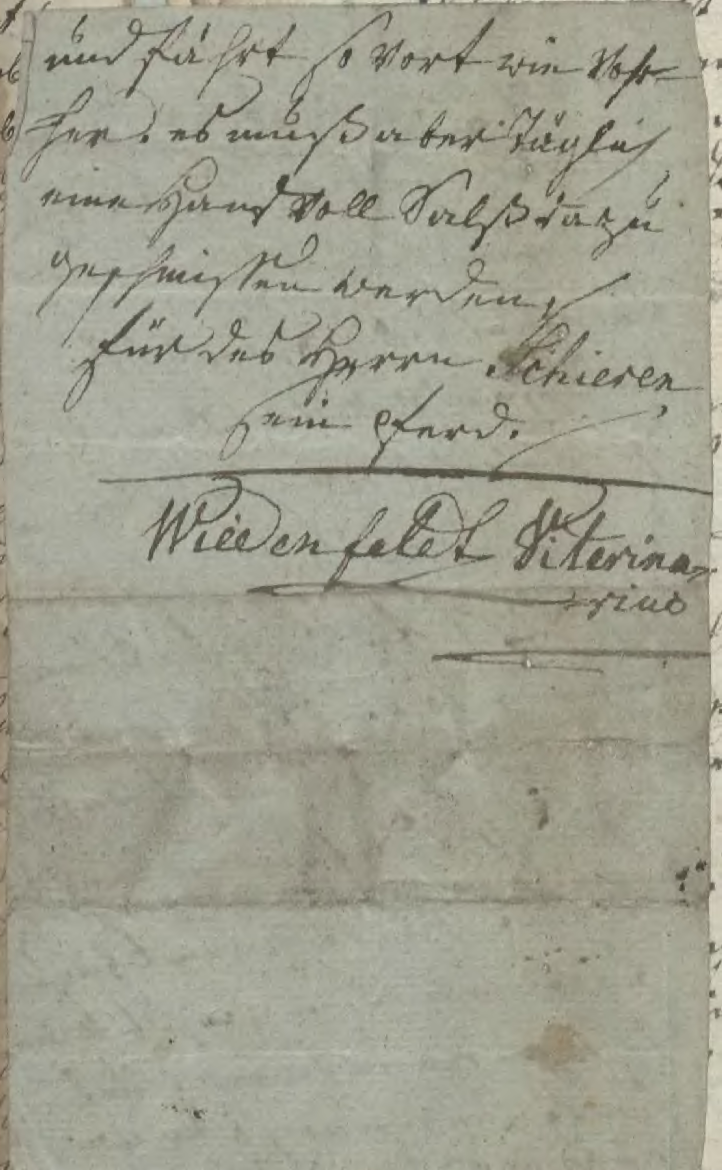 und fährt so vort wie Vohr-
her. es muß aber Täglich
eine Hand Voll Salß dazu
geschmissen werden,
für des Herrn Schieren
sein Pferd.
Wiedenfeldt Viterina-
rius